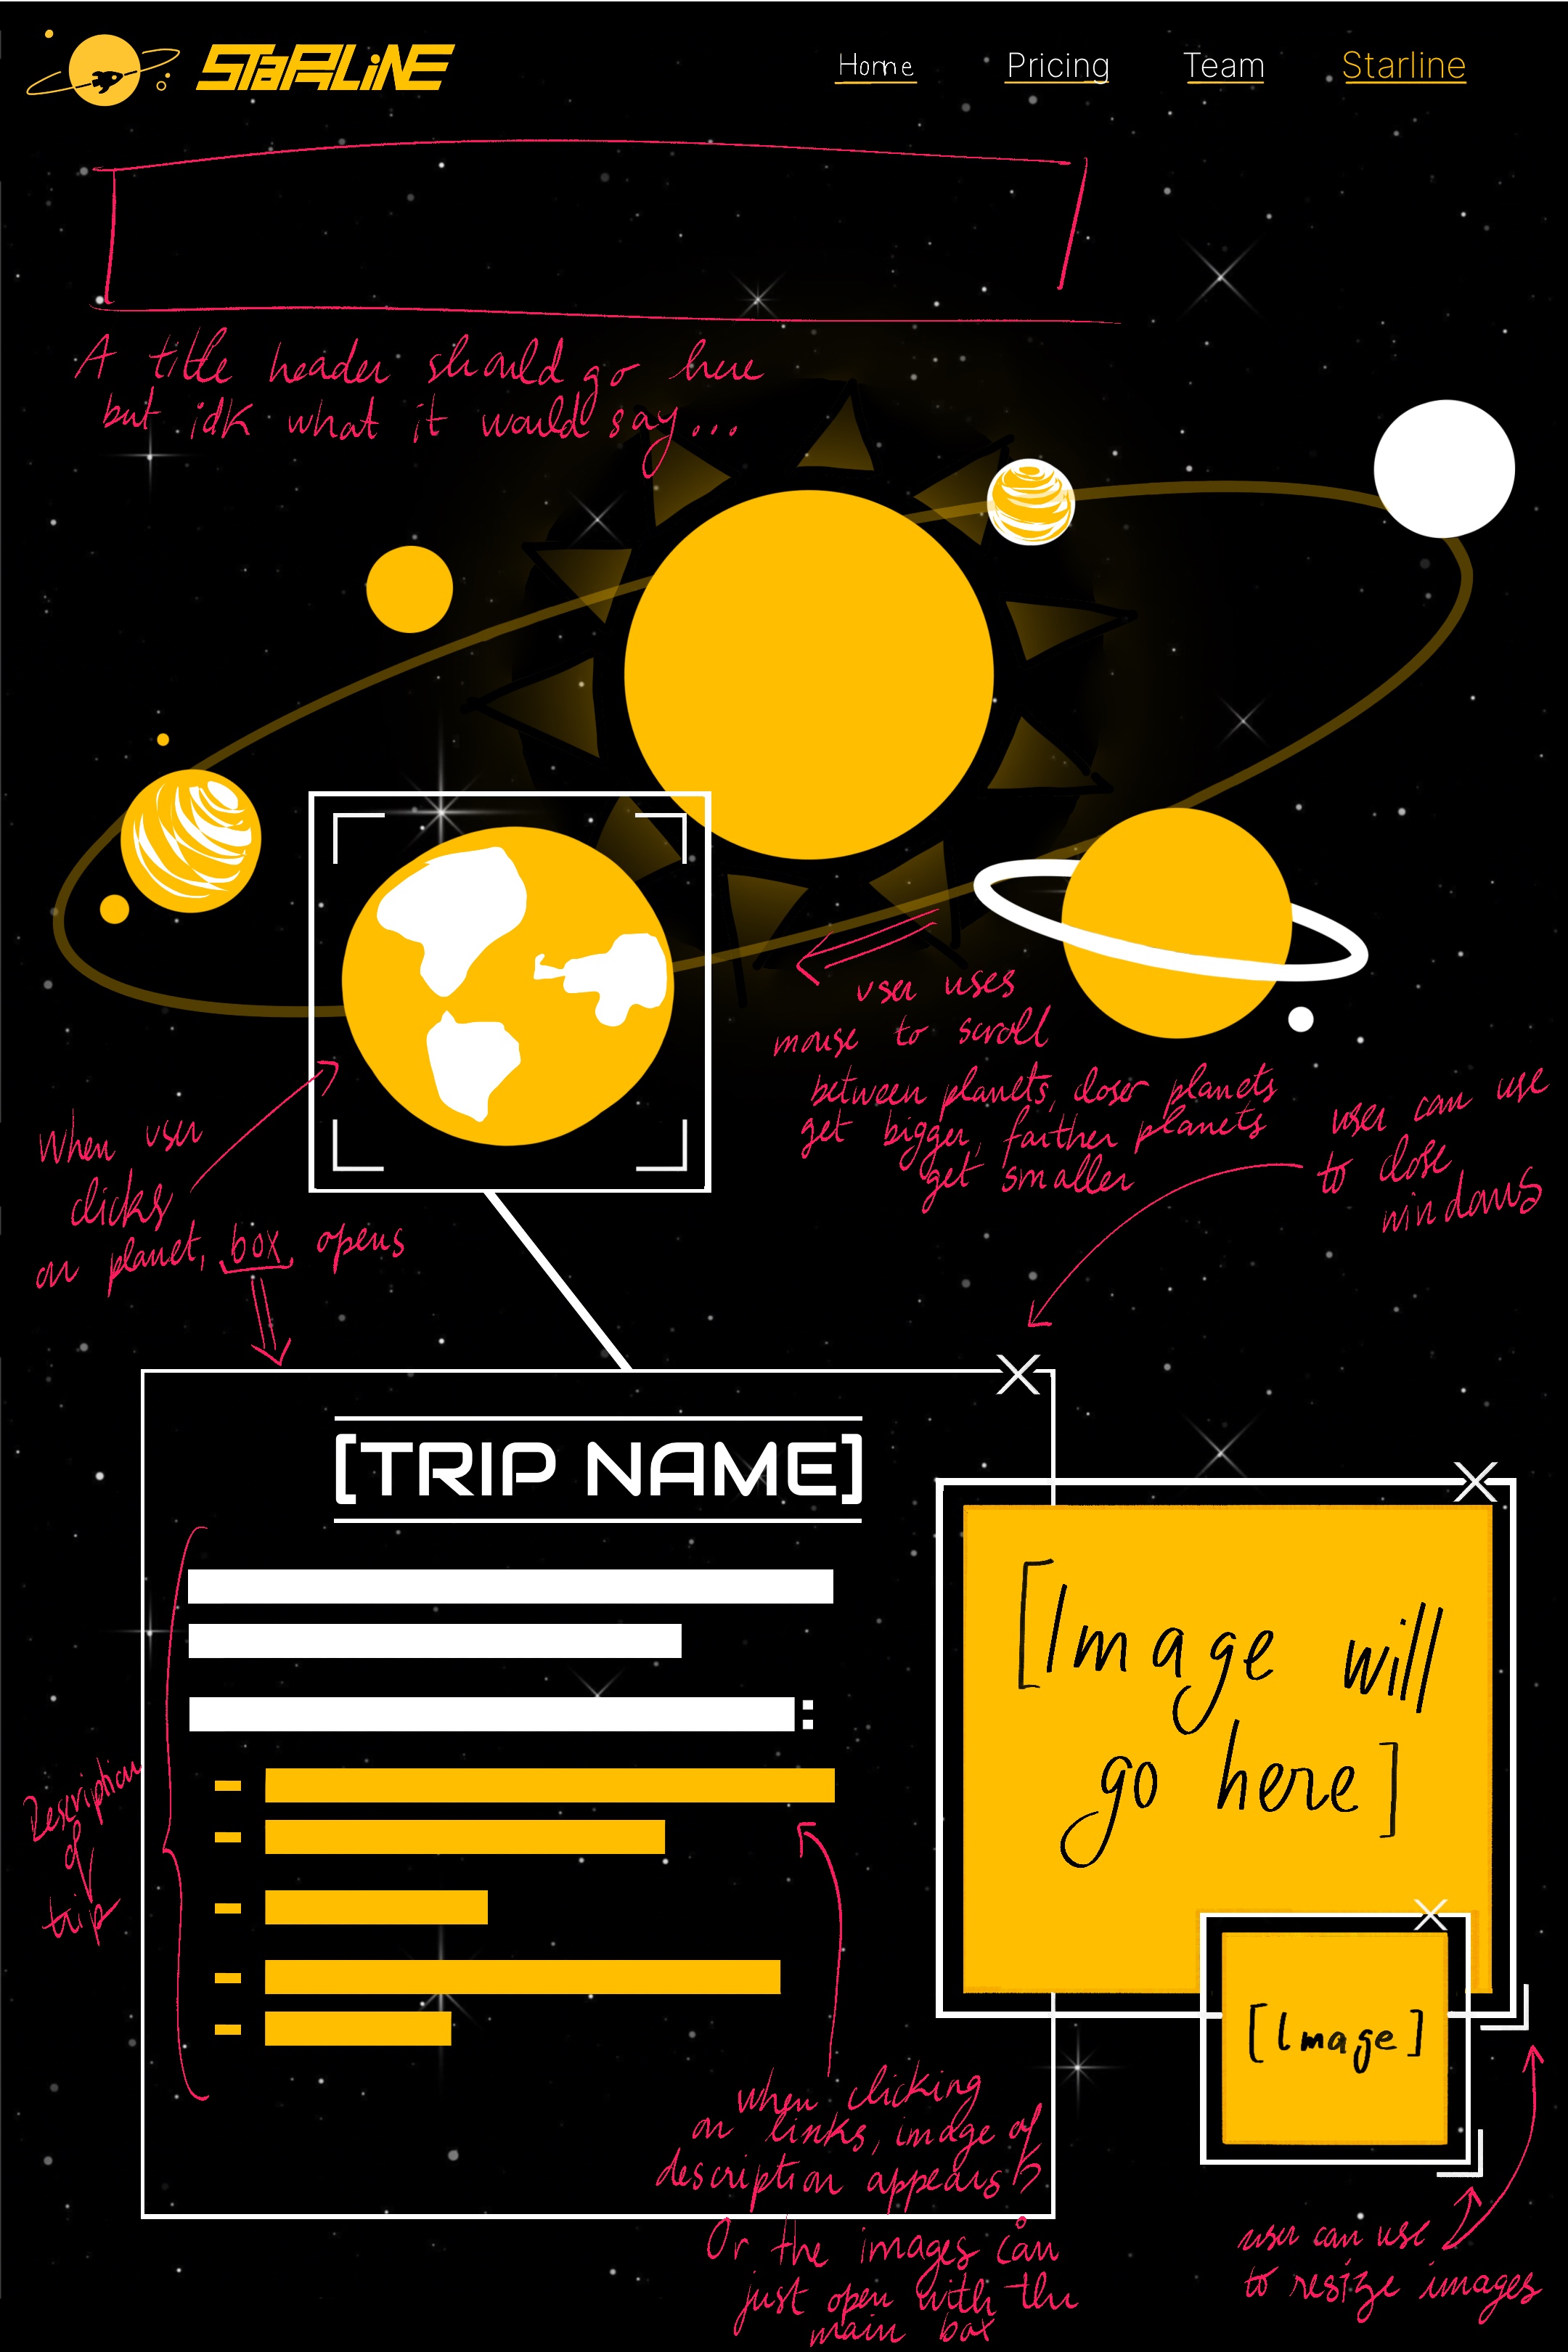 STaRLiNE
Home Pricing Team Starline
A title header should go here
but idk what it would say...
user uses
mouse to scroll
between planets, closer planets
get bigger, farther planets
get smaller
user can use
to close
windows
When user
clicks
on planet, box opens
[TRIP NAME]
[Image will
go here]
Description
of
trip
[Image]
when clicking
on links, image of
description appears?
Or the images can
just open with the
main box
user can use
to resize images